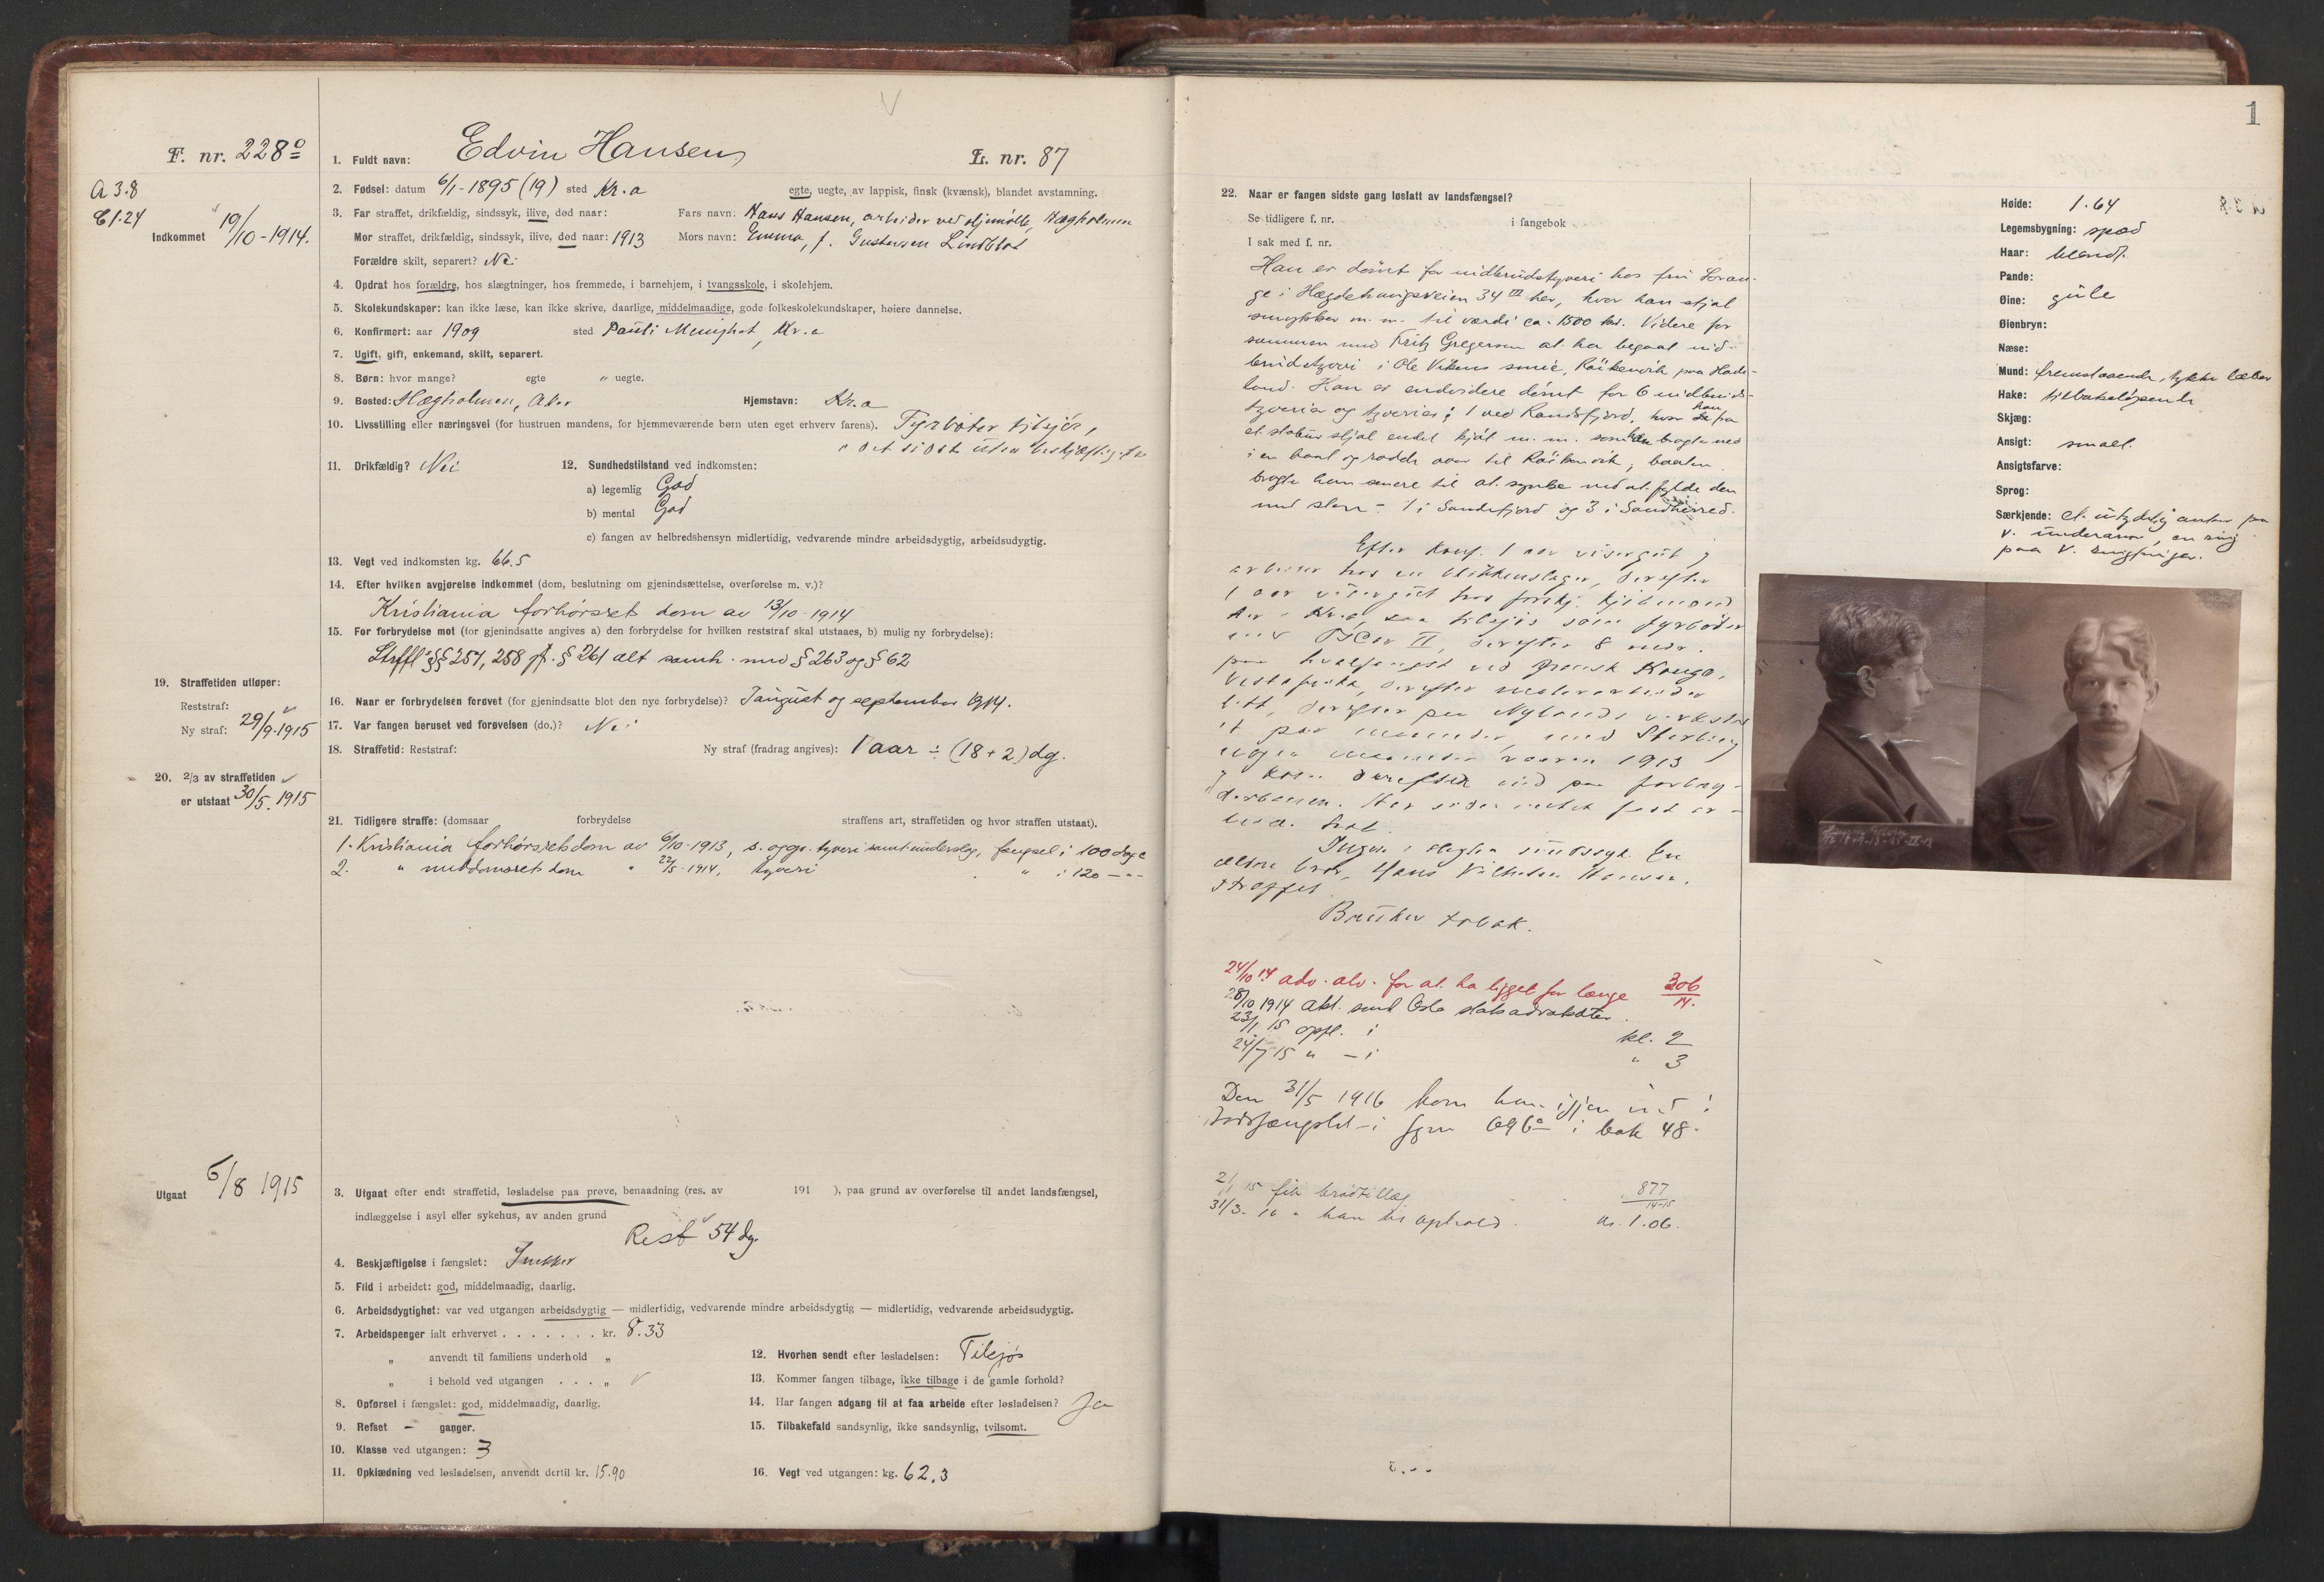 F. nr. 228°
A 3.8
C 1.24
Indkommet 19/10-1914.
1. Fuldt navn: Edvin Hansen
L. nr. 87
2. Fødsel: datum 6/1-1895 (19) sted Kr.a egte, uegte, av lappisk, finsk (kvænsk), blandet avstamning.
3. Far straffet, drikfældig, sindssyk, ilive, død naar: Fars navn: Hans Hansen, arbeider ved oljemølle, Hægholmen
Mor straffet, drikfældig, sindssyk, ilive, død naar: 1913 Mors navn: Emma, f. Gustavsen
Forældre skilt, separert? Nei
4. Opdrat hos forældre, hos slægtninger, hos fremmede, i barnehjem, i tvangsskole, i skolehjem.
5. Skolekundskaper: kan ikke læse, kan ikke skrive, daarlige, middelmaadige, gode folkeskolekundskaper, høiere dannelse.
6. Konfirmert: aar 1909 sted Pauli Menighet, Kr.a
7. Ugift, gift, enkemand, skilt, separert.
8. Børn: hvor mange? egte „ uegte.
9. Bosted: Hægholmen, Aker Hjemstavn: Kr.a
10. Livsstilling eller næringsvei (for hustruen mandens, for hjemmeværende børn uten eget erhverv farens). Fyrbøter tilsjøs,
det sidste uten beskjæftigelse
11. Drikfældig? Nei 12. Sundhedstilstand ved indkomsten:
a) legemlig God
b) mental God
c) fangen av helbredshensyn midlertidig, vedvarende mindre arbeidsdygtig, arbeidsudygtig.
13. Vegt ved indkomsten kg. 66.5
14. Efter hvilken avgjørelse indkommet (dom, beslutning om gjenindsættelse, overførelse m. v.)?
Kristiania forhørsret dom av 13/10-1914
15. For forbrydelse mot (for gjenindsatte angives a) den forbrydelse for hvilken reststraf skal utstaaes, b) mulig ny forbrydelse):
Strffl. §§ 257, 258 jfr. § 261 alt samh. med § 263 og § 62
19. Straffetiden utløper:
Reststraf:
Ny straf: 29/9-1915
16. Naar er forbrydelsen forøvet (for gjenindsatte blot den nye forbrydelse)? I august og september 1914.
17. Var fangen beruset ved forøvelsen (do.)? Nei
18. Straffetid: Reststraf: Ny straf (fradrag angives): 1 aar ÷ (18+2) dg.
20. 2/3 av straffetiden
er utstaat 30/5. 1915
21. Tidligere straffe: (domsaar forbrydelse straffens art, straffetiden og hvor straffen utstaat).
1. Kristiania forhørsrets dom av 6/10-1913, tyveri samt underslag, fængsel i 100 dage
2. " meddomsrets dom " 22/5-1914, tyveri " i 120 — " -
Utgaat 5/8 1915
3. Utgaat efter endt straffetid, løsladelse paa prøve, benaadning (res. av 191 ), paa grund av overførelse til andet landsfængsel,
indlæggelse i asyl eller sykehus, av anden grund
Rest 54 dg.
4. Beskjæftigelse i fængslet: Snekker
5. Flid i arbeidet: god, middelmaadig, daarlig.
6. Arbeidsdygtighet: var ved utgangen arbeidsdygtig — midlertidig, vedvarende mindre arbeidsdygtig — midlertidig, vedvarende arbeidsudygtig.
7. Arbeidspenger ialt erhvervet . . . . . . . kr. 8.33
„ anvendt til familiens underhold „
„ i behold ved utgangen . . . „
8. Opførsel i fængslet: god, middelmaadig, daarlig.
9. Refset - ganger.
10. Klasse ved utgangen: 3
11. Opklædning ved løsladelsen, anvendt dertil kr. 15.90
12. Hvorhen sendt efter løsladelsen: Tilsjøs
13. Kommer fangen tilbage, ikke tilbage i de gamle forhold?
14. Har fangen adgang til at faa arbeide efter løsladelsen? Ja
15. Tilbakefald sandsynlig, ikke sandsynlig, tvilsomt.
16. Vegt ved utgangen: kg. 62.3
1
22. Naar er fangen sidste gang løslatt av landsfængsel?
Se tidligere f. nr. i fangebok
I sak med f. nr.
Han er dømt for indbrudstyveri hos fru
ge i Hægdehaugsveien 34 III her, hvor han stjal
smykker m.m. til værdi ca. 1500 kr. Videre for
sammen med Fritz Gregersen at ha begaat ind-
brudstyveri i Ole Vikens smie, Røikenvik paa Hade-
land. Han er endvidere dømt for 6 indbruds-
tyverier og tyverier; 1 ved Randsfjord, hvor han fra
et stabur stjal endel kjøt m.m. som han bragte ned
i en baat og rodde over til Røikenvik, baaten
bragte han senere til at synke ved at fylde den
med sten - 1 i Sandefjord og 3 i Sandherred.
Efter konf. 1 aar visergut,
arbeider hos en blikkenslager, derefter
1 aar visergut hos forskj. kjøbmænd
her i Kr.a, saa tilsjøs som fyrbøter
med Oscar II, derefter 8 mdr.
paa hvalfangst ved fransk Kongo,
Vestafrika, derefter malerarbeider
litt, derefter paa Nylands verksted
et par maaneder, med Sterling
nogen maaneder vaaren 1913
og kom derefter ind paa forbry-
derbanen. Har siden intet fast ar-
beid hat.
Ingen i slegten sindssyk. En
ældre bror, Hans Vilhelm Hansen,
straffet.
Bruker tobak.
24/10 14 adv. alv. for at ha ligget for længe 306/14.
28/10 1914 Akt. send Oslo statsadvokater.
23/1 15 opfl. i kl. 2
24/7 15 " - i " 3
Den 31/5 1916 kom han igjen ind i
landsfængslet i fgnr 696° i bok 48.
2/1 15 fik brødtillæg 877/14-15
31/3- 10 - han kr. 1.06.
Høide: 1.64
Legemsbygning: spæd
Haar: blondt.
Pande:
Øine: gule
Øienbryn:
Næse:
Mund: fremstaaende, tykke læber
Hake: tilbakeløpende
Skjæg:
Ansigt: smalt.
Ansigtsfarve:
Sprog:
Særkjende: et utydelig anker paa
v. underarm, en ring
paa v. ringfinger.